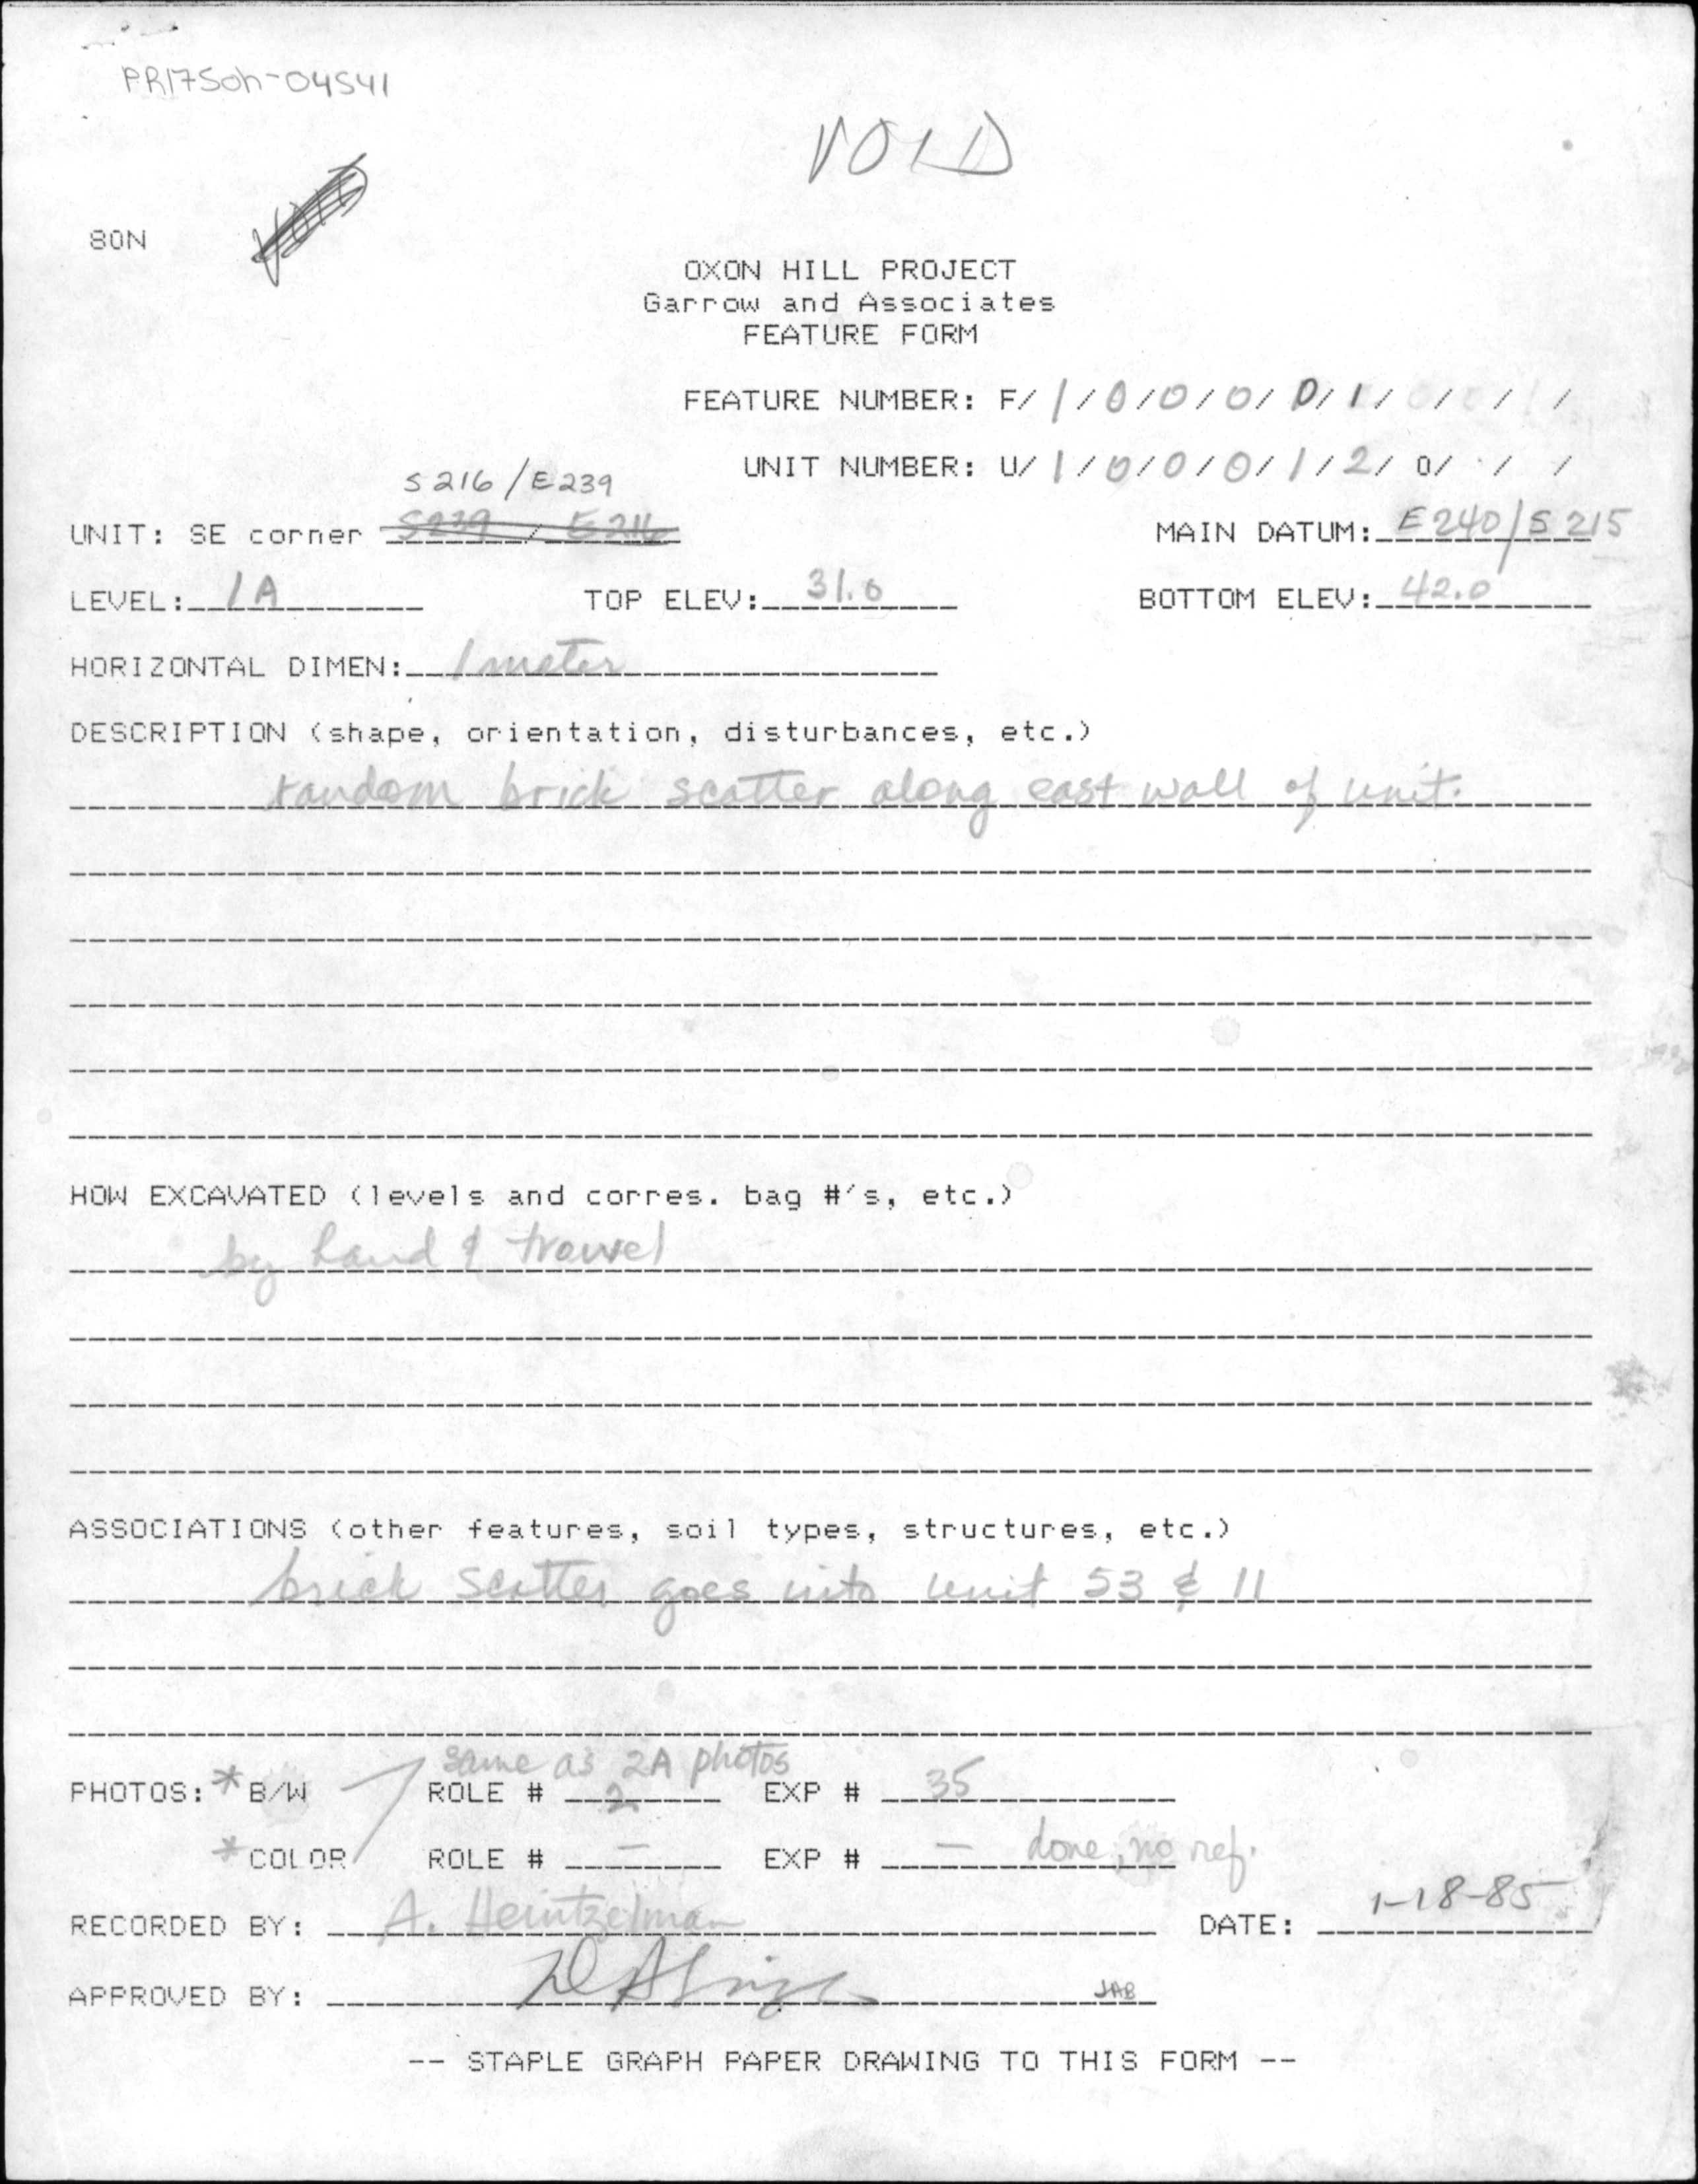 PR175oh-04541
VOID
80N
VOID
OXON HILL PROJECT
Garrow and Associates
FEATURE FORM
FEATURE NUMBER: F/ 1 / 0 / 0 / 0 / 0 / 0 / 1 / / / / /
UNIT NUMBER: U/ 1 / 0 / 0 / 0 / 1 / 2 / 0/ / /
S216/E239
UNIT: SE corner S239 / E216 MAIN DATUM: E240/S215
LEVEL: 1A TOP ELEV: 31.0 BOTTOM ELEV: 42.0
HORIZONTAL DIMEN: 1 meter
DESCRIPTION (shape, orientation, disturbances, etc.)
random brick scatter along east wall of unit.
HOW EXCAVATED (levels and corres. bag #'s, etc.)
by hand & trowel
ASSOCIATIONS (other features, soil types, structures, etc.)
brick scatter goes into unit 53 & 11
same as 2A photos
PHOTOS: * B/W ROLE # 2 EXP # 35
* COLOR ROLE # — EXP # — done, no ref.
RECORDED BY: A. Heintzelman DATE: 1-18-85
APPROVED BY: JAB
-- STAPLE GRAPH PAPER DRAWING TO THIS FORM --